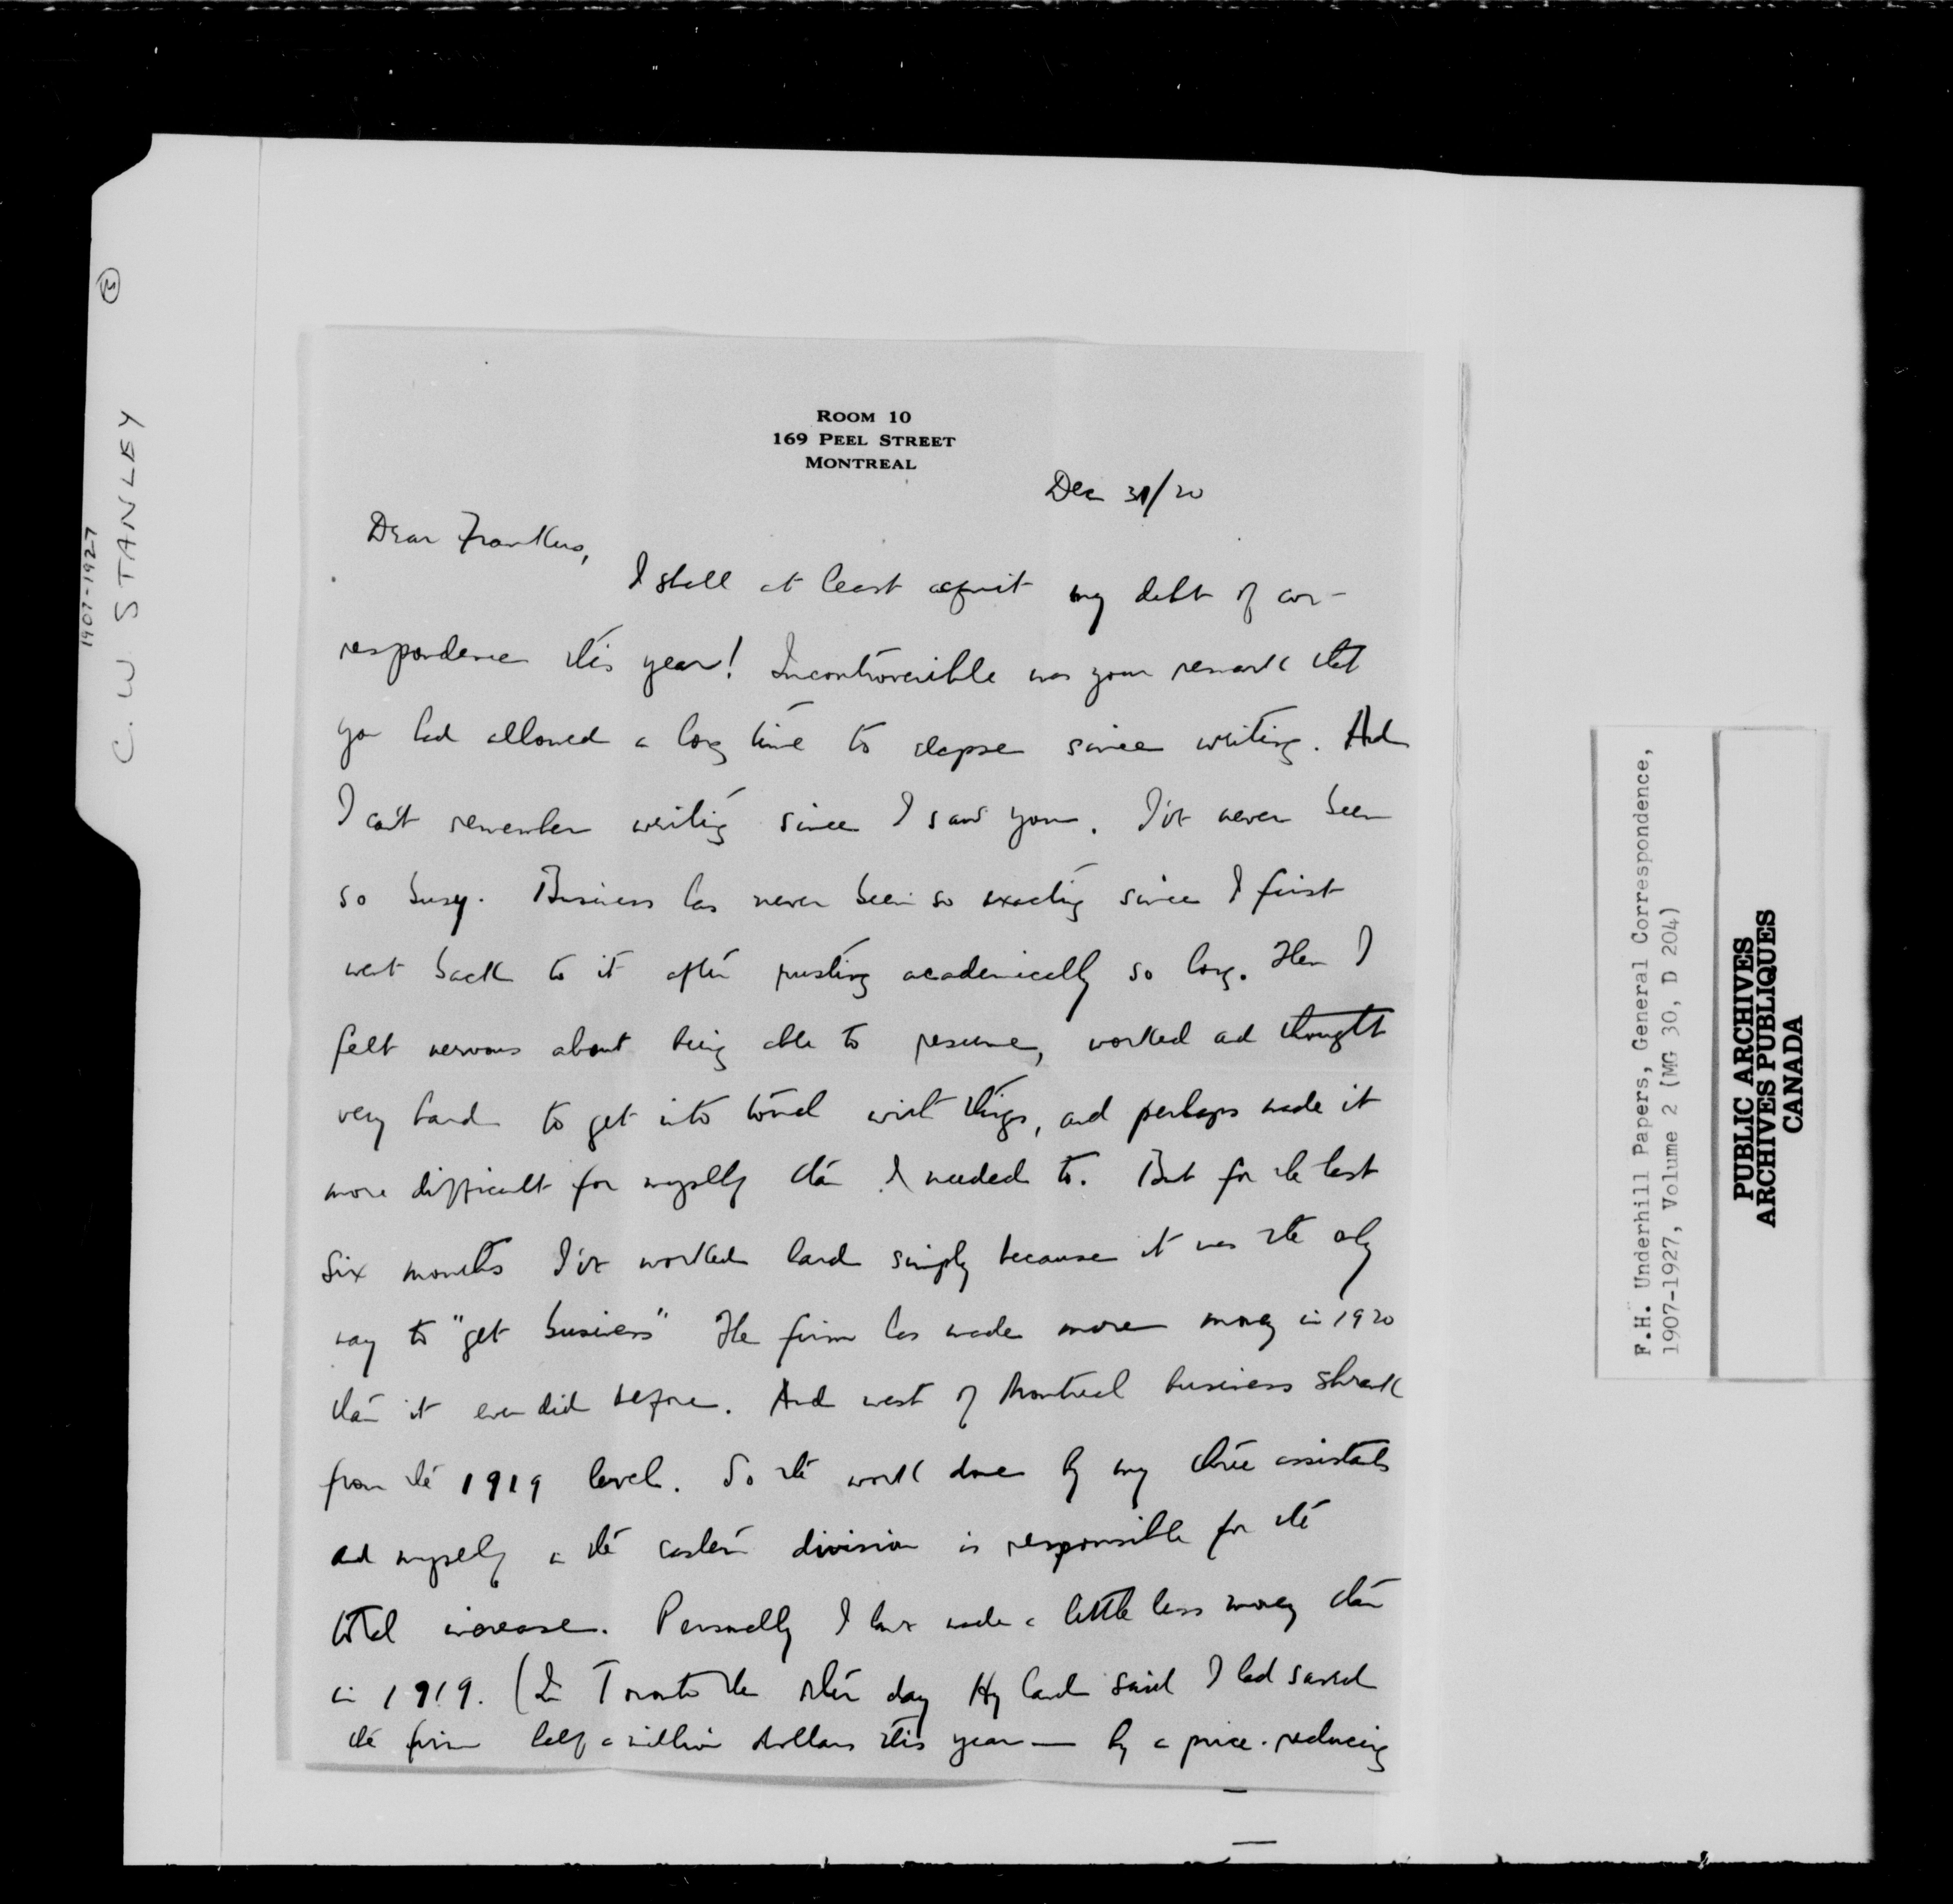 ROOM 10
169 PEEL STREET
MONTREAL
Dec 31/20
Dear
I shall at least acquit my debt of cor-
respondence this year! Incontrovertible was your remark that
you had allowed a long time to elapse since writing. And
I can't remember writing since I saw you. I've never been
so busy. Business has never been so exacting since I first
went back to it after rusting academically so long. Then I
felt nervous about being able to resume, worked and thought
very hard to get into touch with things, and perhaps made it
more difficult for myself than I needed to. But for the last
six months I've worked hard simply because it was the only
way to "get business" The firm has made more money in 1920
than it ever did before. And west of Montreal business shrank
from the 1919 level. So the work done by my three assistants
and myself in the eastern division is responsible for the
total increase. Personally I have made a little less money than
in 1919. (In Toronto the other day said I had saved
the firm half a million dollars this year — by a price-reducing
C. W STANLEY
1907-1927
F.H. Underhill Papers, General Correspondence,
1907-1927, Volume 2 (MG 30, D 204)
PUBLIC ARCHIVES
ARCHIVES PUBLIQUES
CANADA